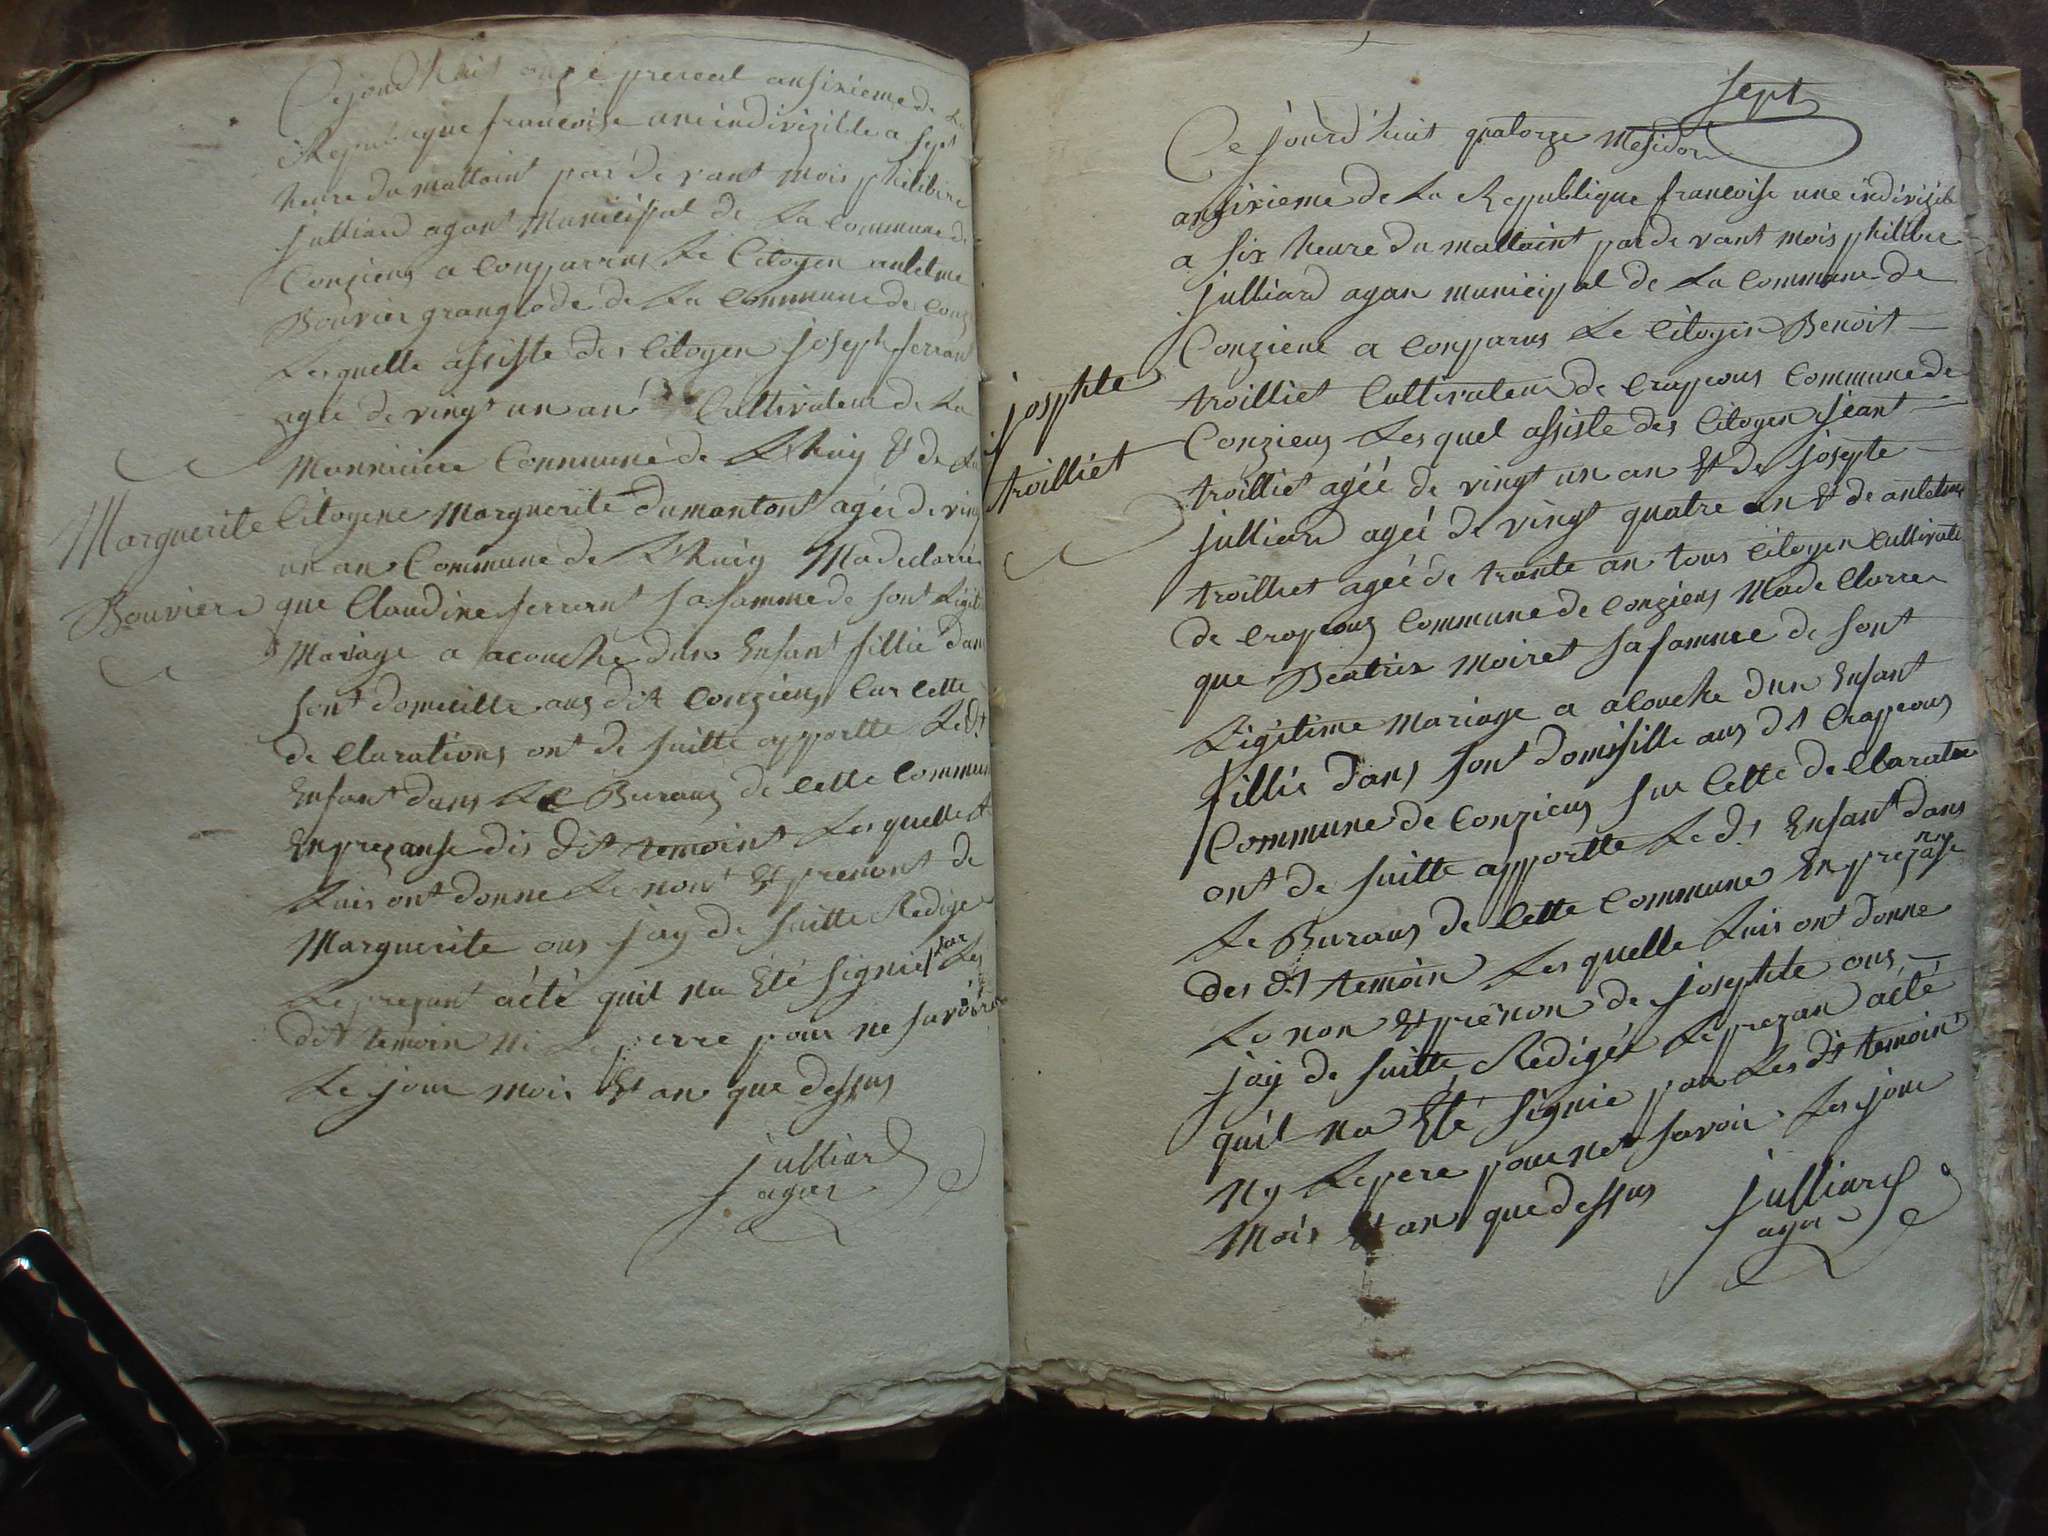 Cejourdhuit onze prereal ansixieme de La
Republique francoise une indivizible a sept
heure du mattaint pardevant mois philibere
julliard agant Municippal de La Commune de
Conziens a Conparrus Le Citoyen antelme
Bouvier de La Commune de Conz
Lesquelle assiste des Citoyen joseph ferrant
agée de vingt un an Cultivateur de La
Commune de & de La
Citoyene Marguerite dumontont agée de ving
un an Commune de Madeclarré
que Claudine ferrant sa famme de sont Ligiti
Mariage a acouche dun Enfant fillie dan
sont domicille aus dit Conziens Cur Cette
de Clarations ont de suitte apportte Ledt
Enfant dans Le Buraus de Cette Commun
En prezanse dis dit temoint Lesquelle
Luis ont donne Le nont Et prenont de
Marguerite ous jay de suitte Redige
Le prezant acté quil na Eté signie par Les
dit temoin ni Le perre pour ne savoire
Le jour mois Et an que dessus
julliard
agan
Marguerite
Bouviere
sept
Ce jourd'huit quatorze Mesidor
ansixieme de La Republique francoise une indivizib
a six heure du mattaint pardevant mois philibere
julliard agan municippal de La Commune de
Conziene a Conparus Le Citoyen Benoit
troilliet Cultivateur de Crapeous Commune de
Conziens Lesquel assiste des Citoyen jeant
troilliet agéé de vingt un an Et de josepte
julliard ageé de vingt quatre an & de antelme
troilliet ageé de trante an tous Citoyen Cultivate
de Crapeous Commune de Conziens Made Clarre
que Beatrix Moiret sa famme de sont
Ligitime Mariage a acouche dun Enfant
fillie dans sont domisille aus dt Crappeous
Commune de Conziens sur Cette de Claration
ont de suitte apportte Le dt Enfant dans
Le Buraus de Cette Commune En prezanse
des dt temoin Lesquelle Luis ont donne
Le non Et prénon de josephte ous
jay de suitte Redigér Le prezan acté
quil na Eté signie par Les dt temoint
Ny Le pere pour ne savoir Les jour
Mois Et an que dessus
julliard
agan
josephte
troilliet